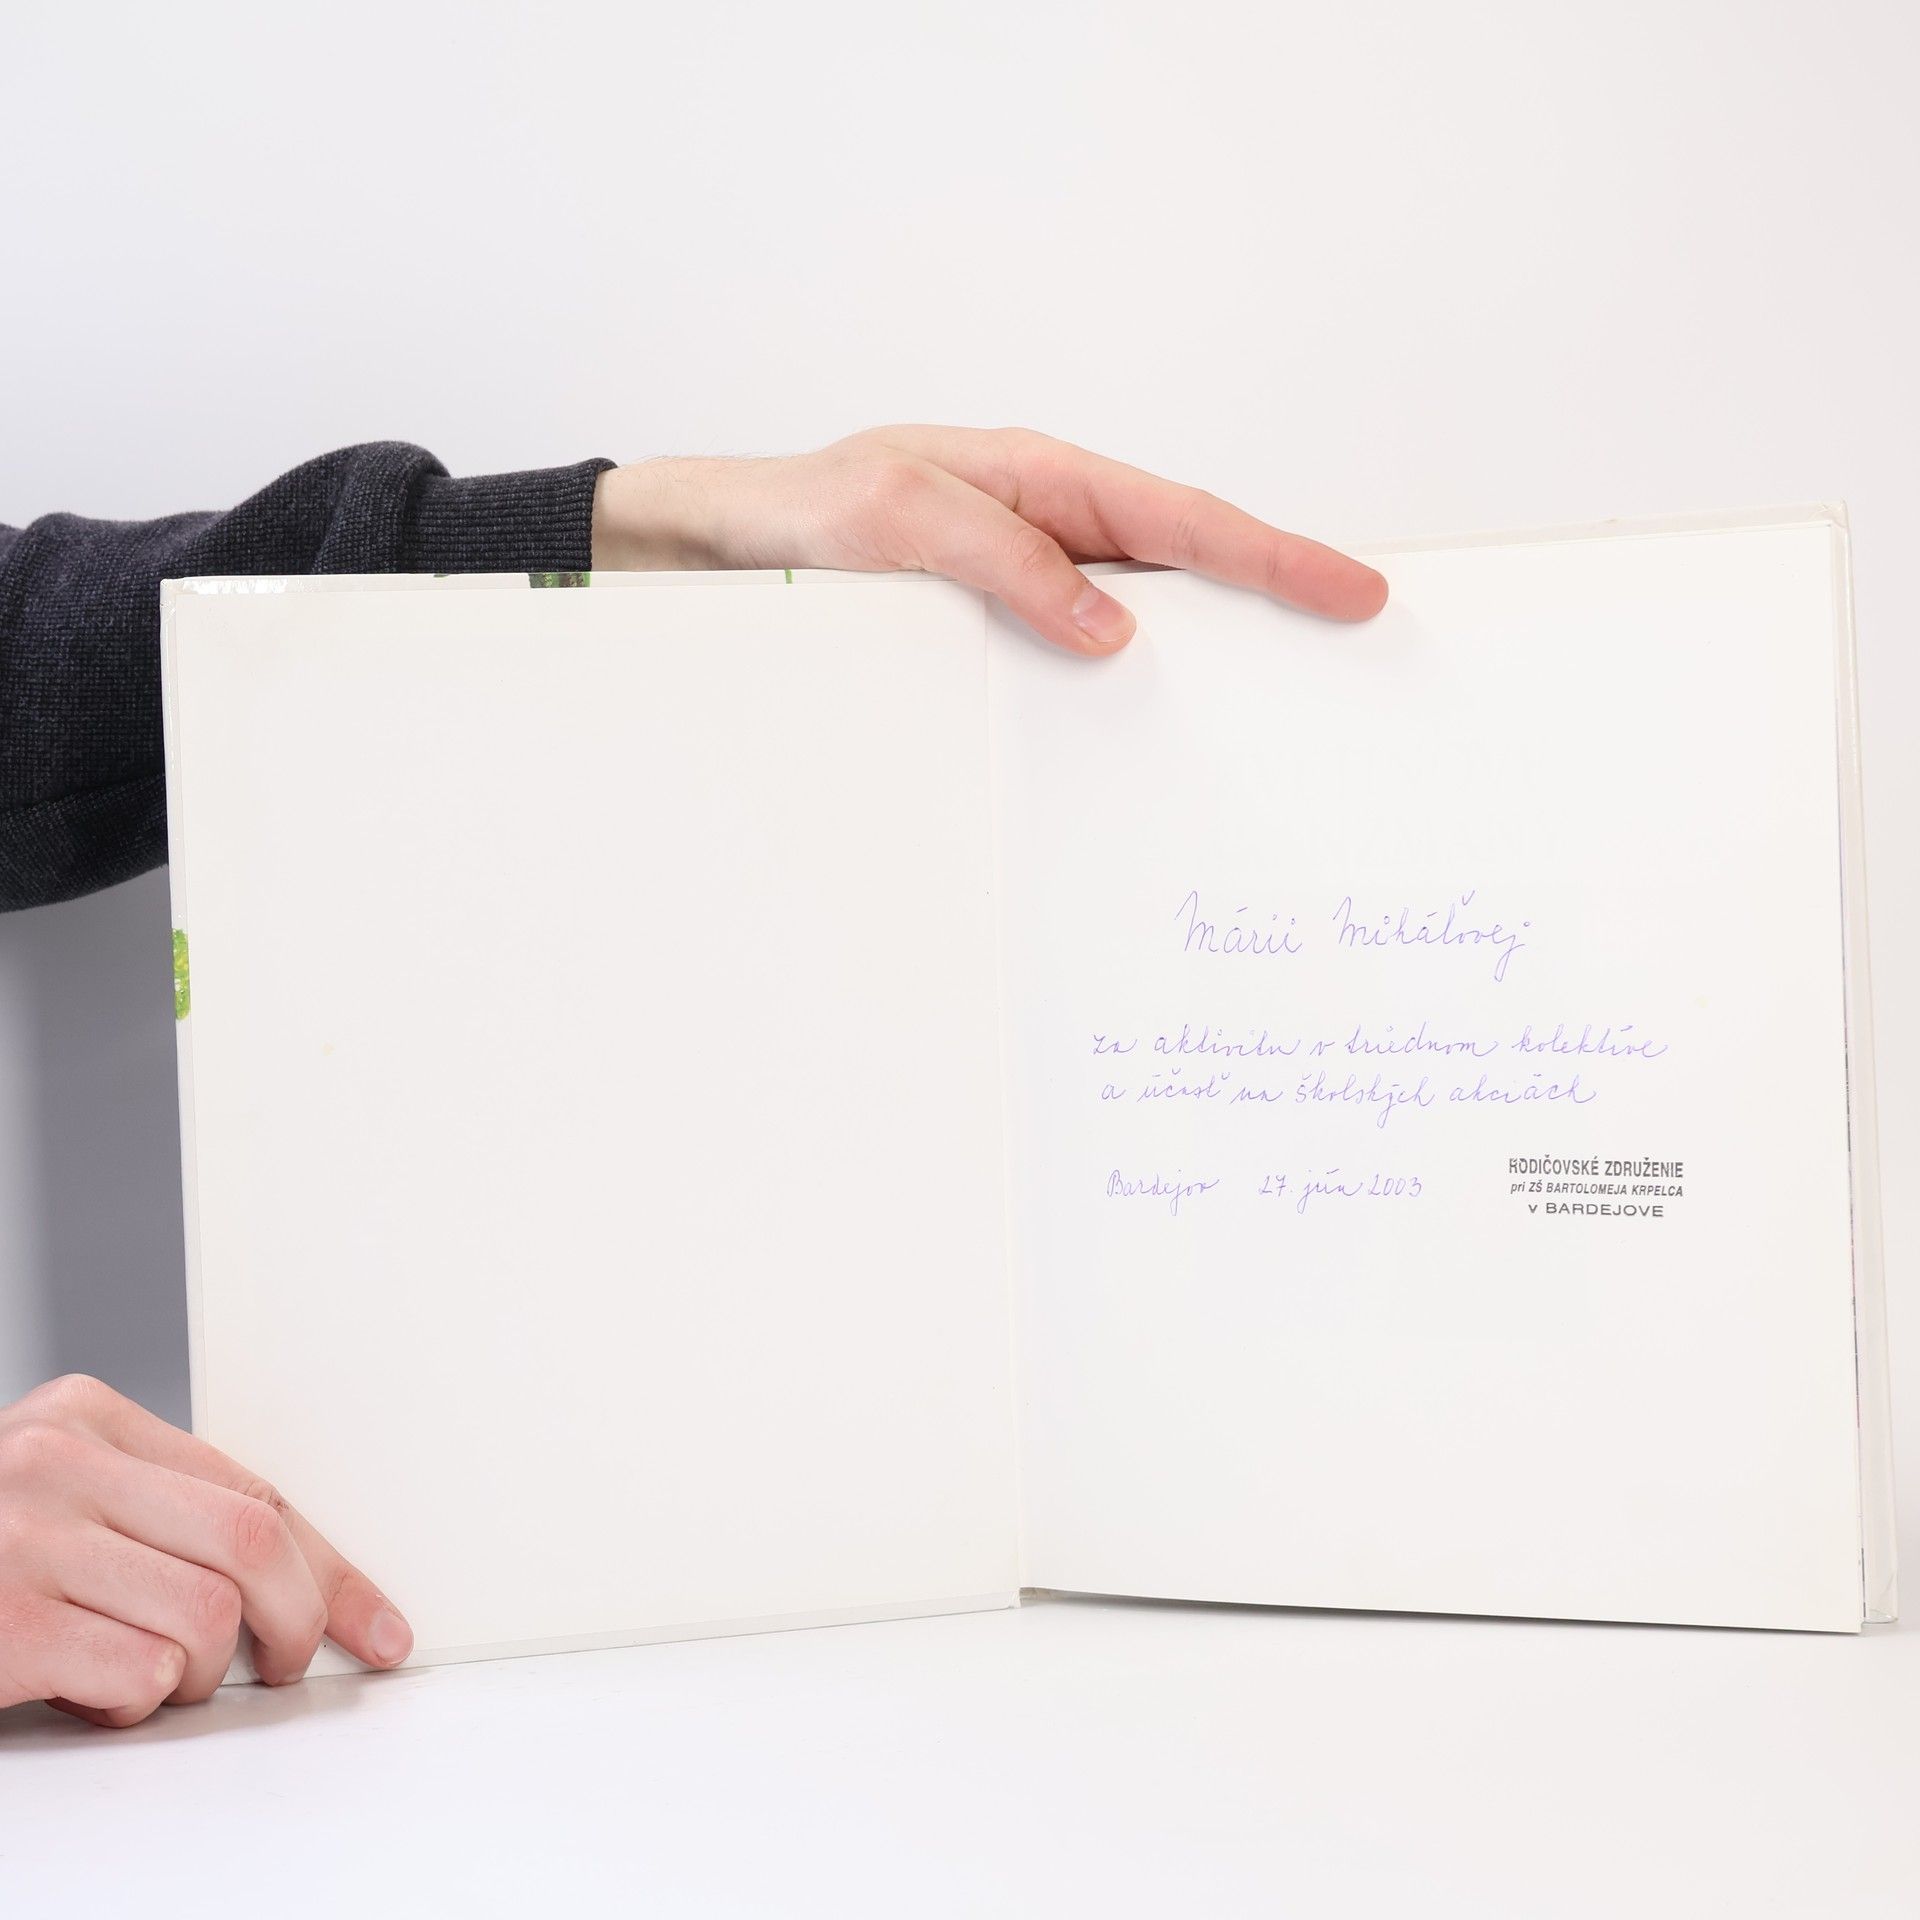 Márii Miháľovej
za aktivitu v triednom kolektíve
a účasť na školských akciách
Bardejov 27. jún 2003
RODIČOVSKÉ ZDRUŽENIE
pri ZŠ BARTOLOMEJA KRPELCA
v BARDEJOVE